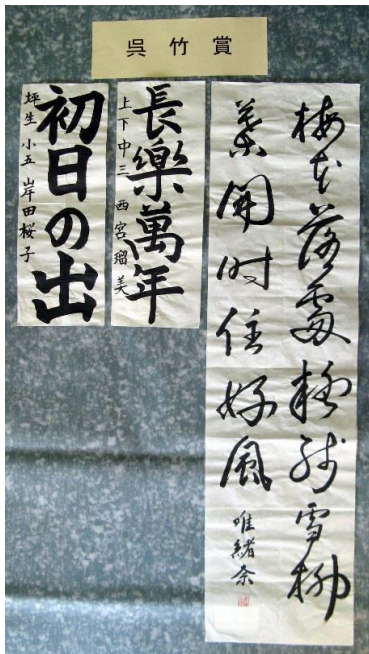 呉竹賞
梅花落處疑残雪柳
葉開時任好風
唯緒奈
長樂萬年
上下中三 西宮瑠美
初日の出
坪生 小五 岸田桜子